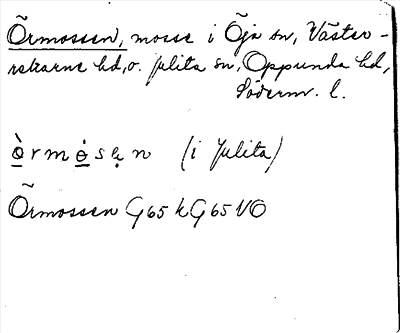 Õrmossen, mosse i Õja sn, Väster-
rekarne hd, o. Julita sn, Oppunda hd,
Söderm. l.
ò̲rmȯ̲sẹn (i Julita)
Õrmossen G65 k G65 VO